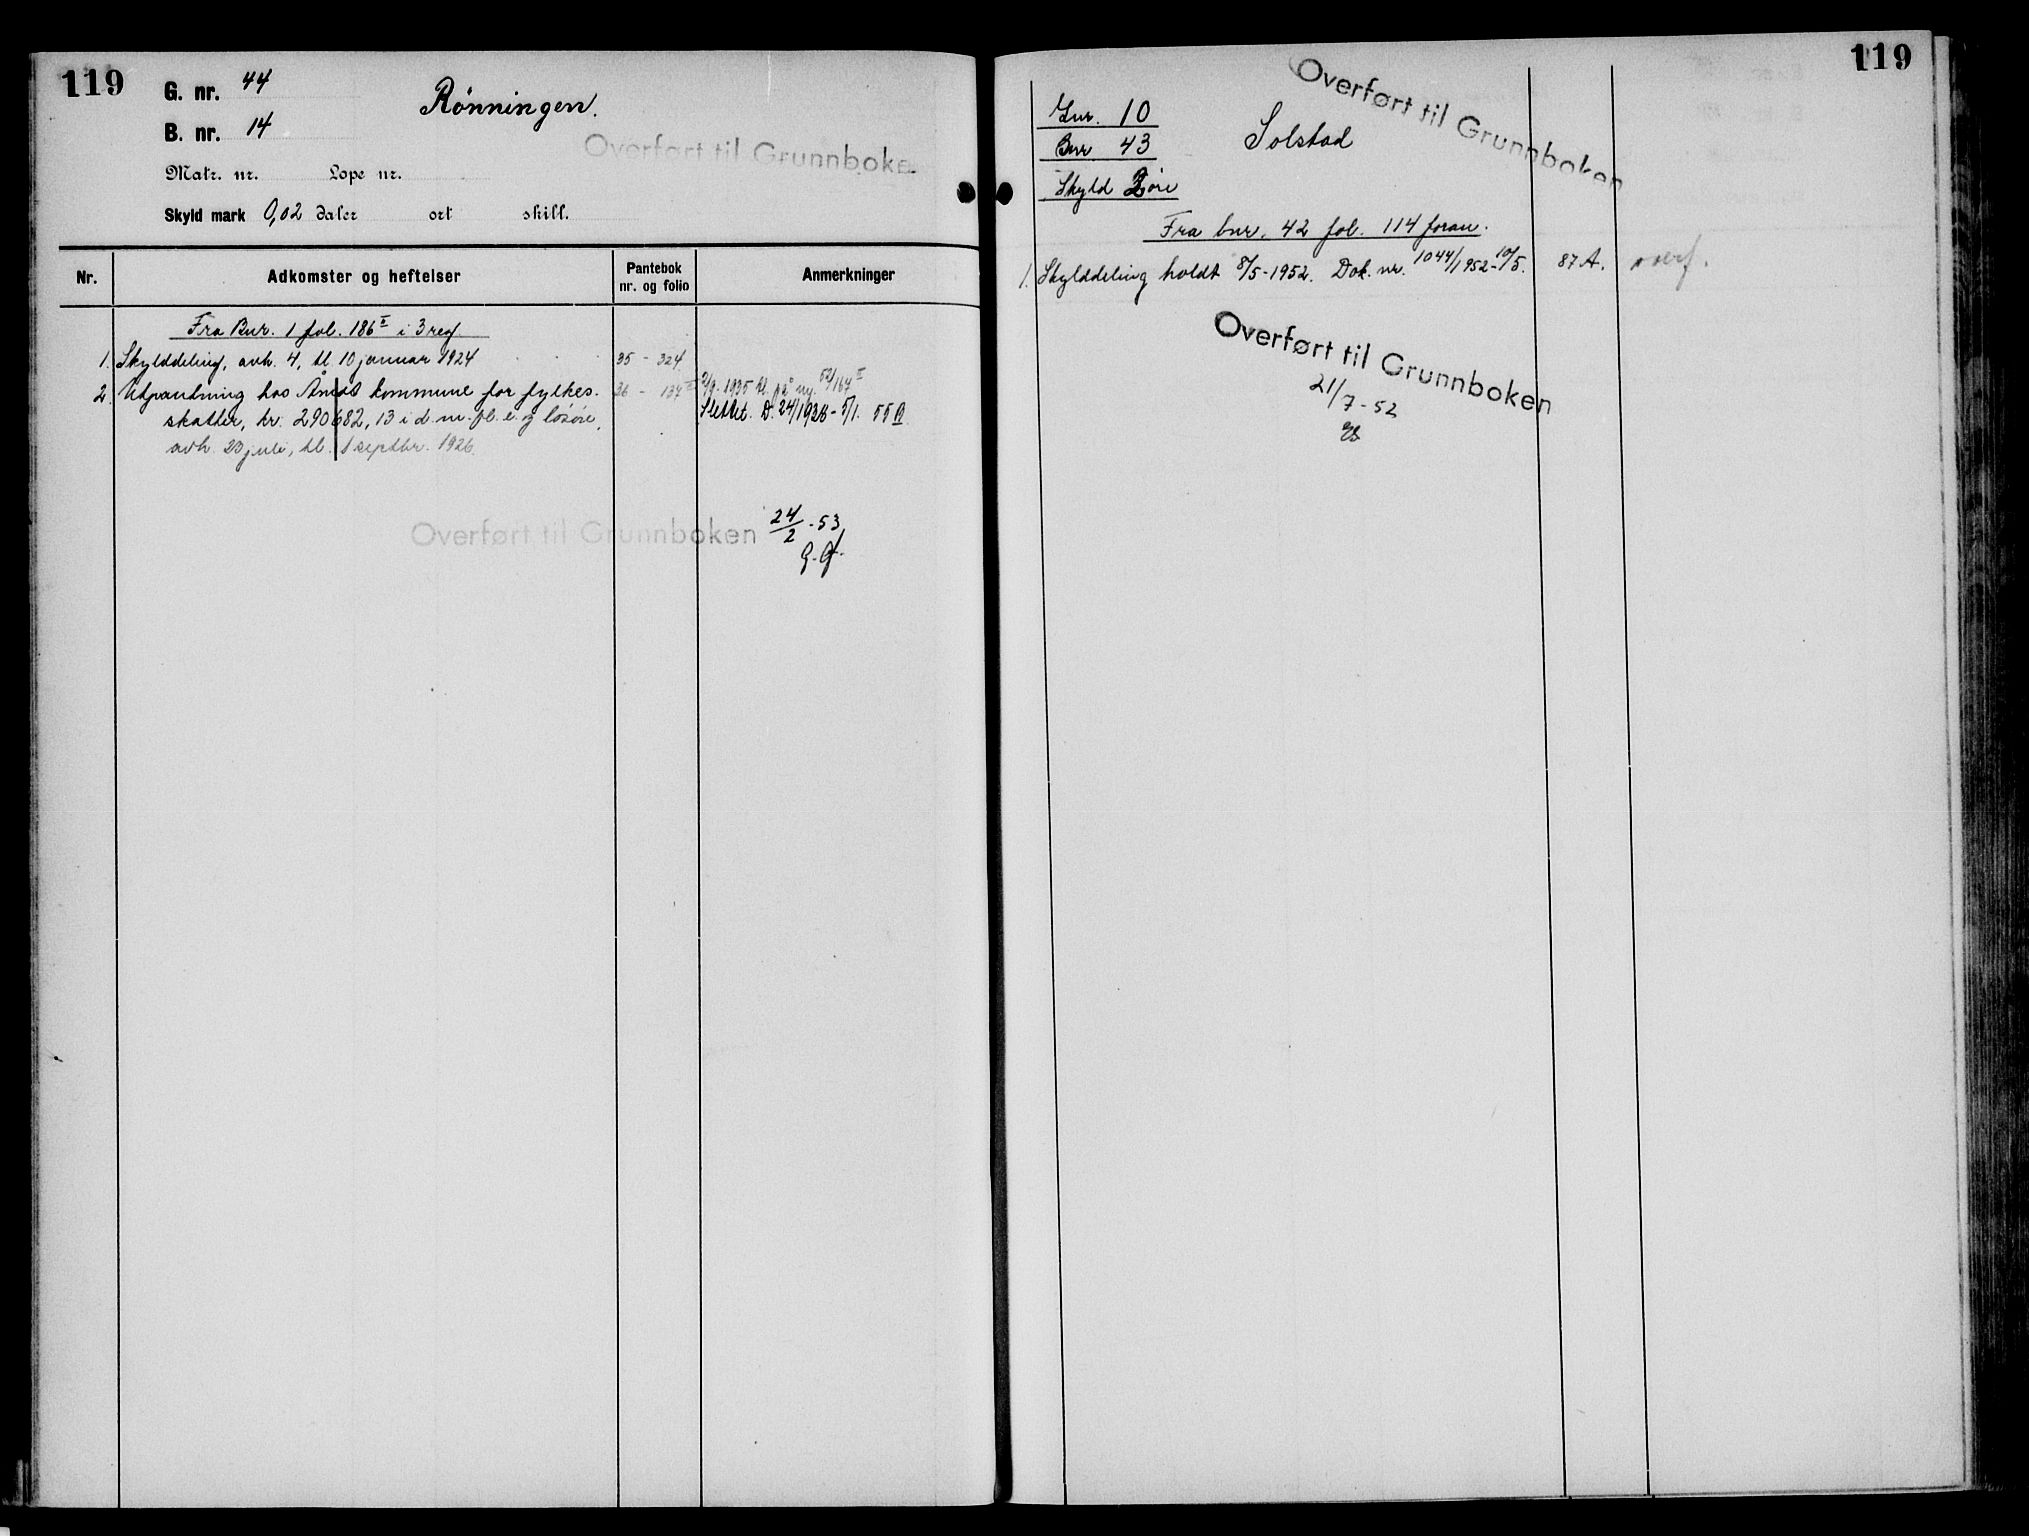 119
G. nr. 44
Rönningen.
B. nr. 14
Overført til Grunnboke
Matr. nr. Lope nr.
Skyld mark 0,02 daler ort skill.
Nr. Adkomster og heftelser Pantebok nr. og folio Anmerkninger
Fra Bnr. 1 fol. 186 II i 3 reg.
1. Skylddeling, avh. 4, tl. 10 januar 1924 35 - 324
2. Utpantning hos Åmot kommune for fylkes- 36 - 134 II 2/9-1935 tl. på ny. 52/164 II
skatter, kr. 290682,13 i d. nr. fl. e. og lösöre, Slettet. D. 24/1936 - 7/1. 55 B
avh. 23 juli, tl. 1 septbr. 1926.
Overført til Grunnboken 24/2 - 53
G. G.
119
Overført til Grunnboken
Gnr. 10
Bnr 43
Solstad
Skyld 2 öre
Fra bnr. 42 fol. 114 foran.
1. Skylddeling holdt 8/5-1952. Dok. nr. 1044/1952-10/5. 87 A. overf.
Overført til Grunnboken
21/7 - 52